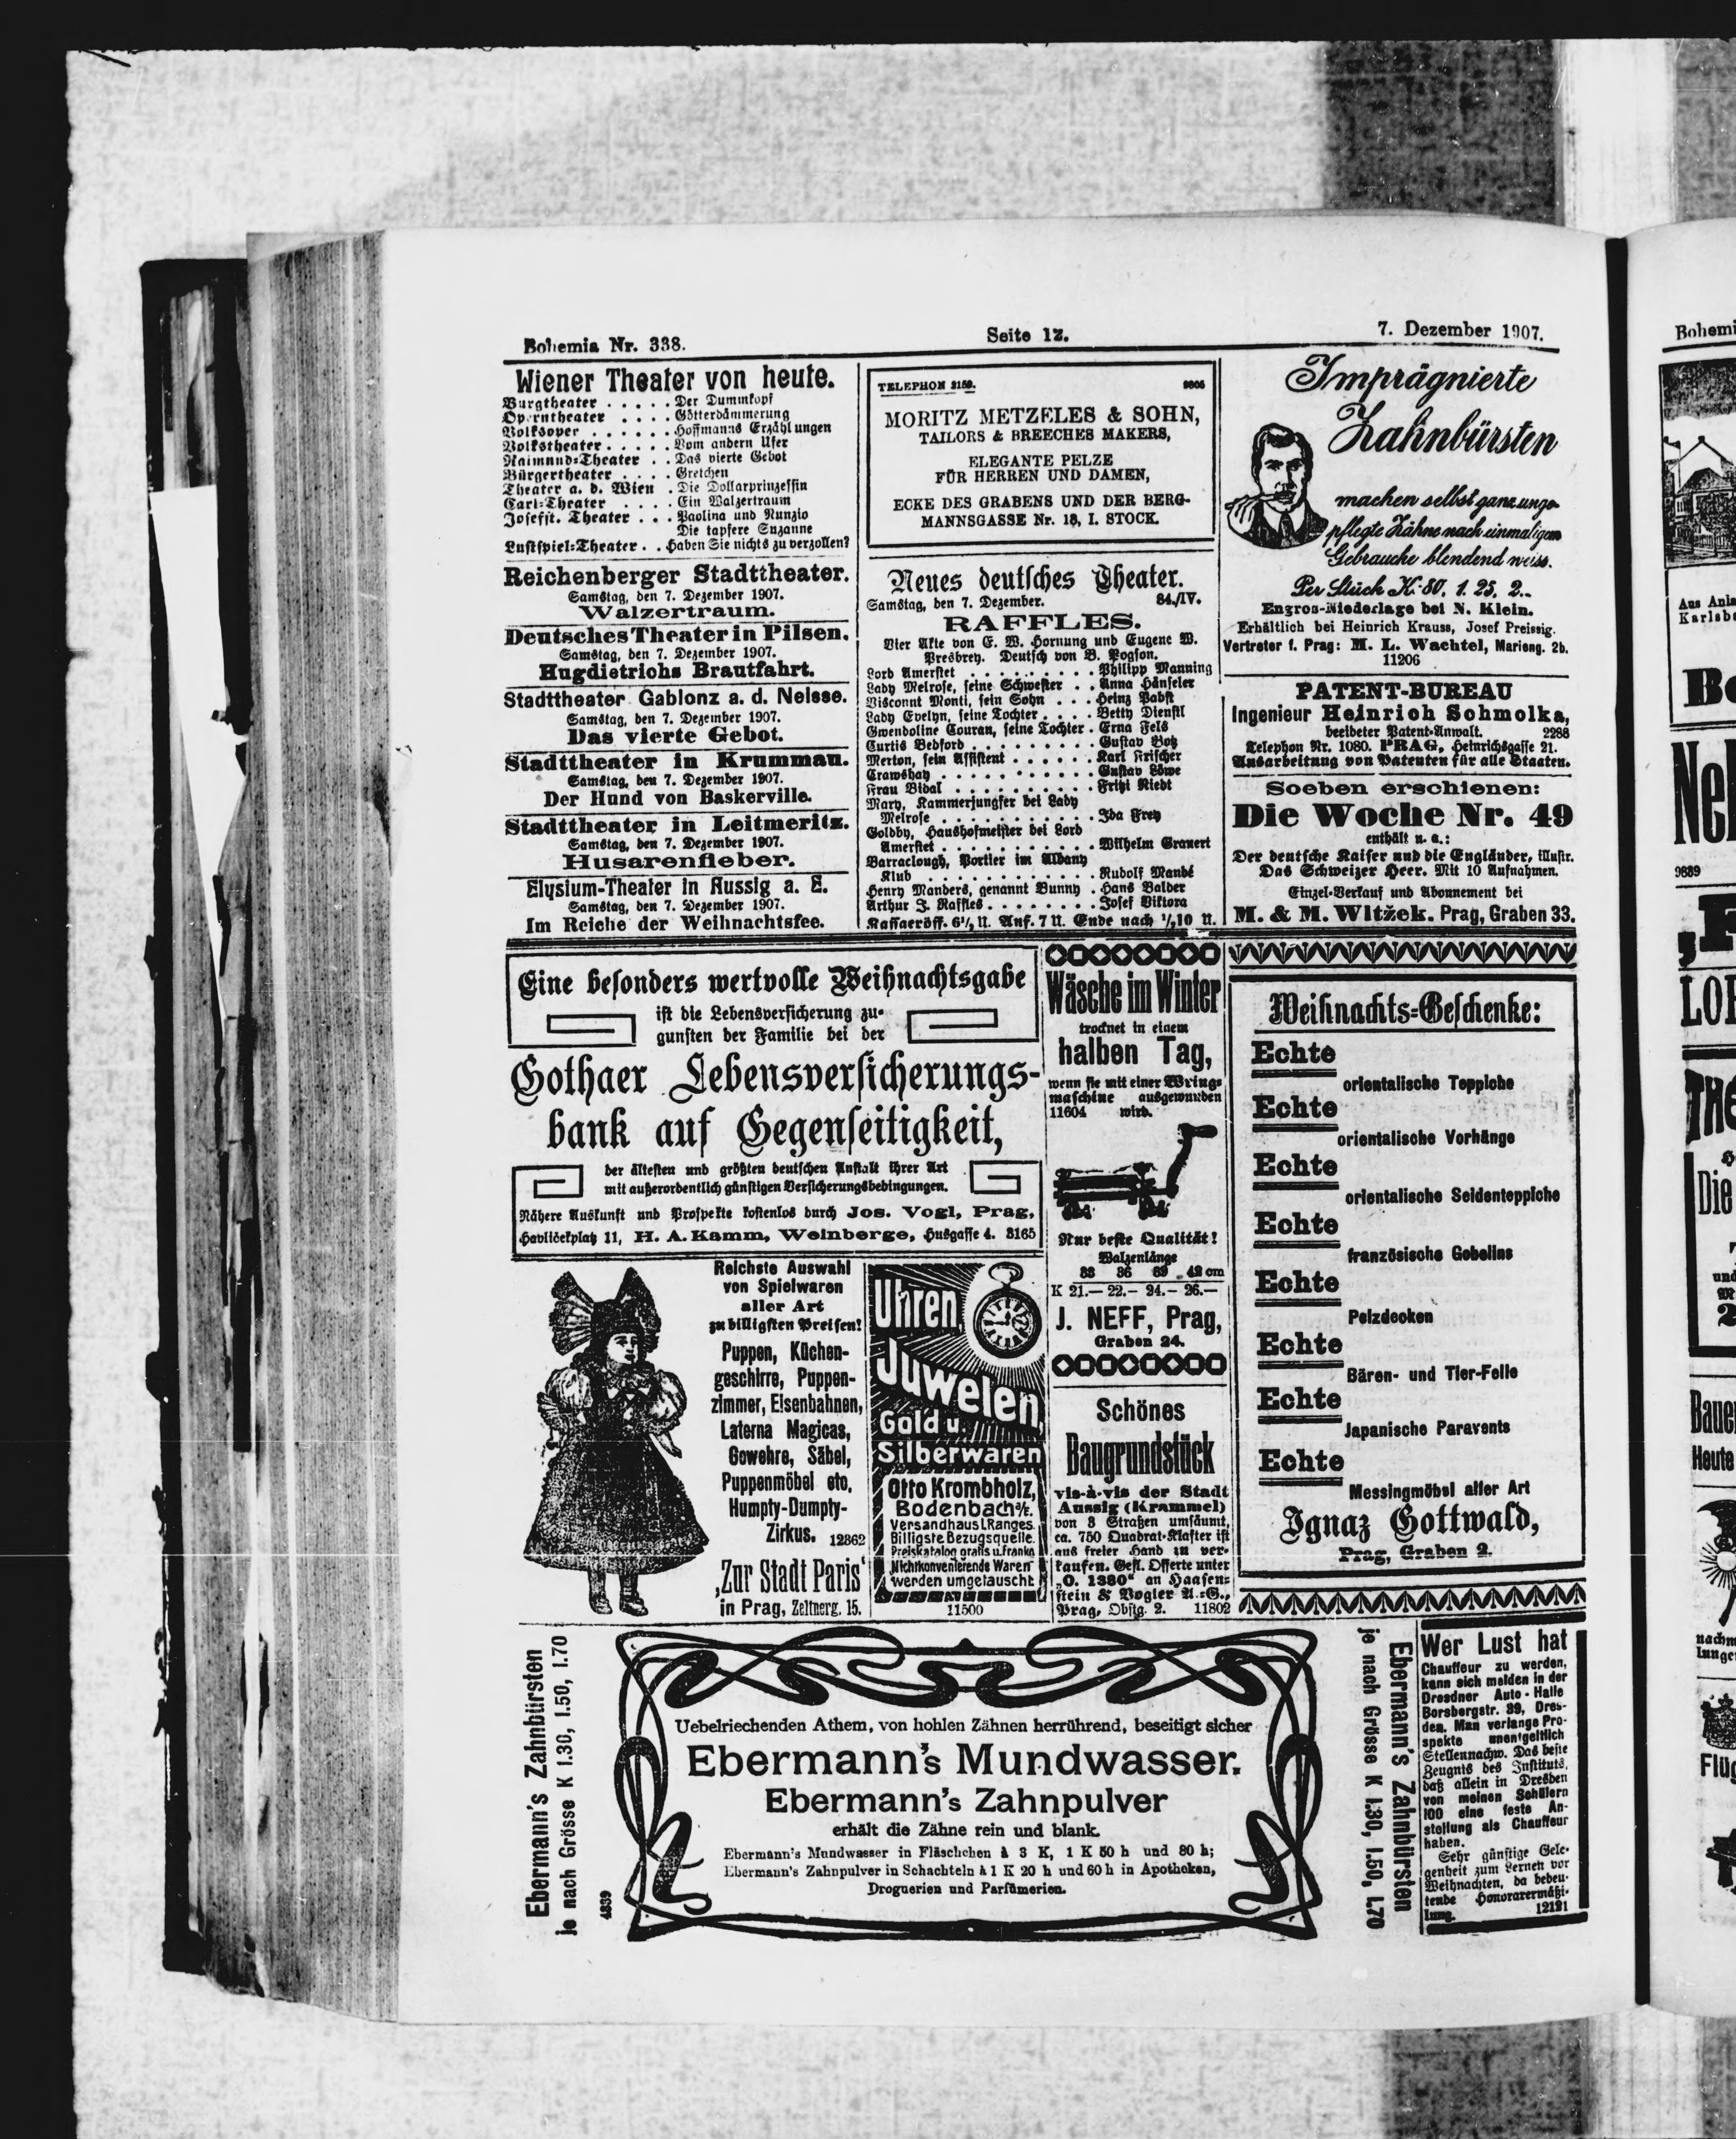 Bohemia Nr. 338.
Seite 12.
7. Dezember 1907.
Wiener Theater von heute.
Burgtheater . . . . . Der Dummkopf
Operntheater . . . . Götterdämmerung
Volksoper . . . . . . Hoffmanns Erzählungen
Volkstheater . . . . . Vom andern Ufer
Raimund-Theater . . Das vierte Gebot
Bürgertheater . . . . Gretchen
Theater a. d. Wien . Die Dollarprinzessin
Carl-Theater . . . . Ein Walzertraum
Josefst. Theater . . . Paolina und Nunzio
Die tapfere Suzanne
Lustspiel-Theater . . Haben Sie nichts zu verzollen?
Reichenberger Stadttheater.
Samstag, den 7. Dezember 1907.
Walzertraum.
Deutsches Theater in Pilsen.
Samstag, den 7. Dezember 1907.
Hugdietrichs Brautfahrt.
Stadttheater Gablonz a. d. Neisse.
Samstag, den 7. Dezember 1907.
Das vierte Gebot.
Stadttheater in Krummau.
Samstag, den 7. Dezember 1907.
Der Hund von Baskerville.
Stadttheater in Leitmeritz.
Samstag, den 7. Dezember 1907.
Husarenfieber.
Elysium-Theater in Aussig a. E.
Samstag, den 7. Dezember 1907.
Im Reiche der Weihnachtsfee.
TELEPHON 2159. 9805
MORITZ METZELES & SOHN,
TAILORS & BREECHES MAKERS,
ELEGANTE PELZE
FÜR HERREN UND DAMEN,
ECKE DES GRABENS UND DER BERG-
MANNSGASSE Nr. 18, I. STOCK.
Neues deutsches Theater.
Samstag, den 7. Dezember. 84./IV.
RAFFLES.
Vier Akte von E. W. Hornung und Eugene W.
Presbrey. Deutsch von B. Pogson.
Lord Amerstet . . . . . . . . . Philipp Manning
Lady Melrose, seine Schwester . . Anna Hänseler
Visconnt Monti, sein Sohn . . . Heinz Pabst
Lady Evelyn, seine Tochter . . . . Betty Dienstl
Gwendoline Couran, seine Tochter . Erna Fels
Curtis Bedford . . . . . . . . . Gustav Botz
Merton, sein Assistent . . . . . . Karl Frischer
Crawshay . . . . . . . . . . . Gustav Löwe
Frau Vidal . . . . . . . . . . . Fritzi Niedt
Mary, Kammerjungfer bei Lady
Melrose . . . . . . . . . . . Ida Frey
Goldby, Haushofmeister bei Lord
Amerstet . . . . . . . . . . . Wilhelm Granert
Barraclough, Portier im Albany
Klub . . . . . . . . . . . . Rudolf Mandé
Henry Manders, genannt Bunny . Hans Balder
Arthur J. Raffles . . . . . . . . Josef Viktora
Kassaeröff. 6½ U. Anf. 7 U. Ende nach ½10 U.
Imprägnierte
Zahnbürsten
machen selbst ganz unge-
pflegte Zähne nach einmaligem
Gebrauche blendend weiss.
Per Stück K.-80, 1.25, 2.-
Engros-Niederlage bei N. Klein.
Erhältlich bei Heinrich Krauss, Josef Preissig.
Vertreter f. Prag: M. L. Wachtel, Marieng. 2b.
11206
PATENT-BUREAU
Ingenieur Heinrich Schmolka,
beeideter Patent-Anwalt. 2288
Telephon Nr. 1080. PRAG, Heinrichsgasse 21.
Ausarbeitung von Patenten für alle Staaten.
Soeben erschienen:
Die Woche Nr. 49
enthält u. a.:
Der deutsche Kaiser und die Engländer, illustr.
Das Schweizer Heer. Mit 10 Aufnahmen.
Einzel-Verkauf und Abonnement bei
M. & M. Witžek. Prag, Graben 33.
Eine besonders wertvolle Weihnachtsgabe
ist die Lebensversicherung zu-
gunsten der Familie bei der
Gothaer Lebensversicherungs-
bank auf Gegenseitigkeit,
der ältesten und größten deutschen Anstalt ihrer Art
mit außerordentlich günstigen Versicherungsbedingungen.
Nähere Auskunft und Prospekte kostenlos durch Jos. Vogl, Prag,
Havlíčekplatz 11, H. A. Kamm, Weinberge, Husgasse 4. 3165
Wäsche im Winter
trocknet in einem
halben Tag,
wenn sie mit einer Wring-
maschine ausgewunden
11604 wird.
Nur beste Qualität!
Walzenlänge
33 36 39 42 cm
K 21.— 22.- 24.- 26.—
J. NEFF, Prag,
Graben 24.
Weihnachts-Geschenke:
Echte
orientalische Teppiche
Echte
orientalische Vorhänge
Echte
orientalische Seidenteppiche
Echte
französische Gobelins
Echte
Pelzdecken
Echte
Bären- und Tier-Felle
Echte
Japanische Paravents
Echte
Messingmöbel aller Art
Ignaz Gottwald,
Prag, Graben 2.
Reichste Auswahl
von Spielwaren
aller Art
zu billigsten Preisen!
Puppen, Küchen-
geschirre, Puppen-
zimmer, Eisenbahnen,
Laterna Magicas,
Gewehre, Säbel,
Puppenmöbel etc,
Humpty-Dumpty-
Zirkus. 12862
„Zur Stadt Paris“
in Prag, Zeltnerg. 15.
Uhren,
Juwelen,
Gold u.
Silberwaren
Otto Krombholz,
Bodenbach a/E.
Versandhaus I. Ranges.
Billigste Bezugsquelle.
Preiskatalog gratis u. franko
Nichtkonvenierende Waren
werden umgetauscht
11500
Schönes
Baugrundstück
vis-à-vis der Stadt
Aussig (Krammel)
von 3 Straßen umsäumt,
ca. 750 Quadrat-Klafter ist
aus freier Hand zu ver-
kaufen. Gefl. Offerte unter
„O. 1380“ an Haasen-
stein & Vogler A.-G.,
Prag, Obstg. 2. 11802
Ebermann's Zahnbürsten
je nach Grösse K 1.30, 1.50, 1.70
4839
Uebelriechenden Athem, von hohlen Zähnen herrührend, beseitigt sicher
Ebermann's Mundwasser.
Ebermann's Zahnpulver
erhält die Zähne rein und blank.
Ebermann's Mundwasser in Fläschchen à 3 K, 1 K 50 h und 80 h;
Ebermann's Zahnpulver in Schachteln à 1 K 20 h und 60 h in Apotheken,
Droguerien und Parfümerien.
Ebermann's Zahnbürsten
je nach Grösse K 1.30, 1.50, 1.70
Wer Lust hat
Chauffeur zu werden,
kann sich melden in der
Dresdner Auto-Halle
Borsbergstr. 39, Dres-
den. Man verlange Pro-
spekte unentgeltlich
Stellennachw. Das beste
Zeugnis des Instituts,
daß allein in Dresden
von meinen Schülern
100 eine feste An-
stellung als Chauffeur
haben.
Sehr günstige Gele-
genheit zum Lernen vor
Weihnachten, da bedeu-
tende Honorarermäßi-
gung. 12121
Bohemi
Aus Anla
Karlsba
9889
Die
und
Baue
Heute
nachm
Flüg